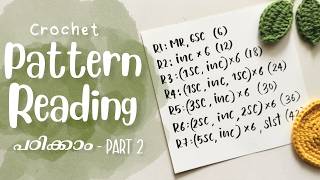 Crochet
Pattern
Reading
പഠിക്കാം - PART 2
R1: MR, 6SC (6)
R2: inc × 6 (12)
R3: (1SC, inc)×6 (18)
R4: (1SC, inc, 1SC)×6 (24)
R5: (3SC, inc)×6 (30)
R6: (2SC, inc, 2SC)×6 (36)
R7: (5SC, inc)×6, slst (42